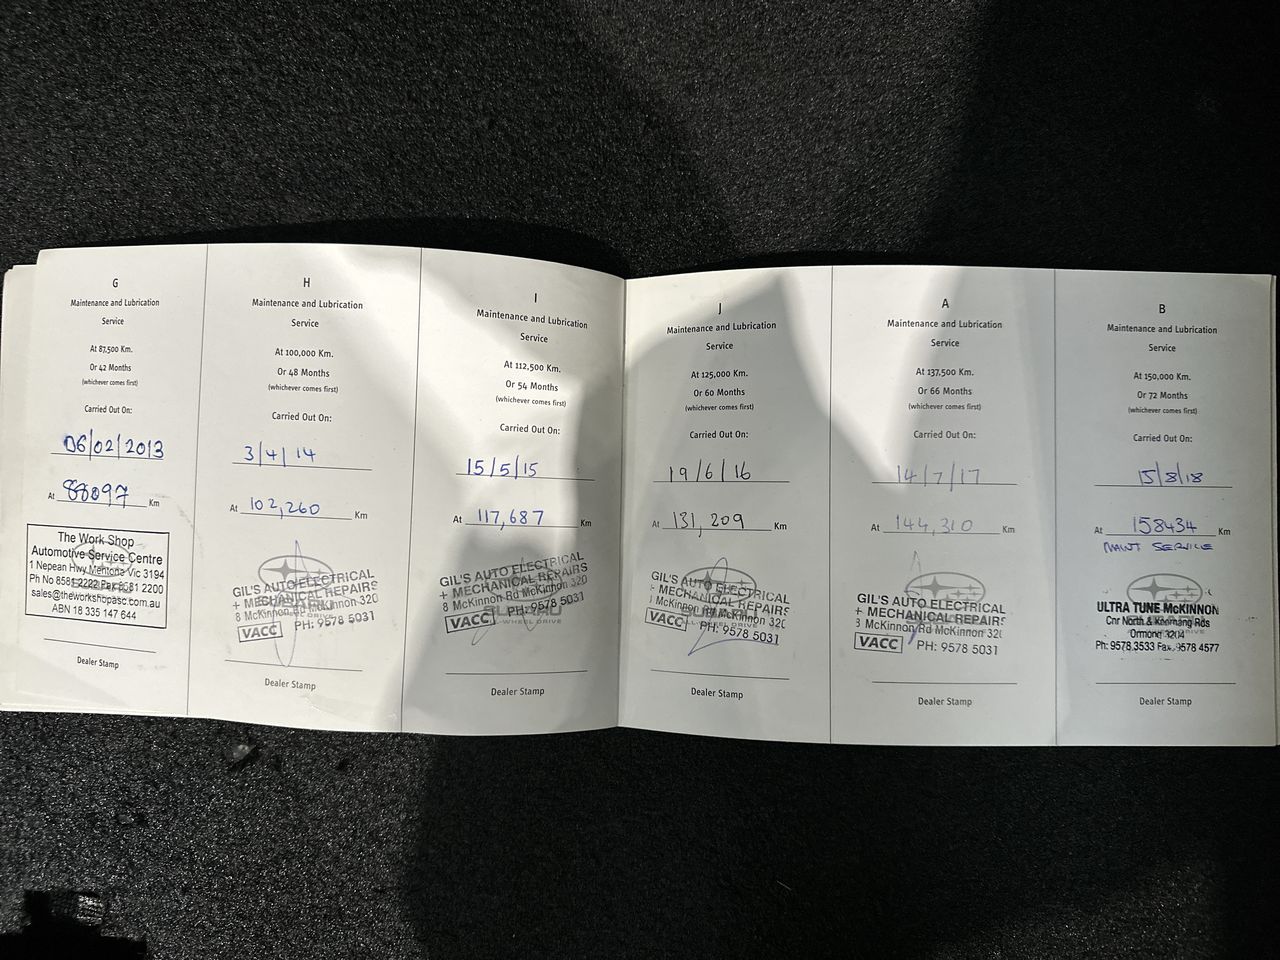 G
Maintenance and Lubrication
Service
At 87,500 Km.
Or 42 Months
(whichever comes first)
Carried Out On:
06/02/2013
At 88097 Km
The Work Shop
Automotive Service Centre
1 Nepean Hwy Mentone Vic 3194
Ph No 8581 2222 Fax 8581 2200
sales@theworkshopasc.com.au
ABN 18 335 147 644
Dealer Stamp
H
Maintenance and Lubrication
Service
At 100,000 Km.
Or 48 Months
(whichever comes first)
Carried Out On:
3/4/14
At 102,260 Km
GIL'S AUTO ELECTRICAL
+ MECHANICAL REPAIRS
8 McKinnon Rd McKinnon 320
VACC PH: 9578 5031
Dealer Stamp
I
Maintenance and Lubrication
Service
At 112,500 Km.
Or 54 Months
(whichever comes first)
Carried Out On:
15/5/15
At 117,687 Km
GIL'S AUTO ELECTRICAL
+ MECHANICAL REPAIRS
8 McKinnon Rd McKinnon 320
VACC PH: 9578 5031
SUBARU
ALL-WHEEL DRIVE
Dealer Stamp
J
Maintenance and Lubrication
Service
At 125,000 Km.
Or 60 Months
(whichever comes first)
Carried Out On:
19/6/16
At 131,209 Km
GIL'S AUTO ELECTRICAL
+ MECHANICAL REPAIRS
McKinnon Rd McKinnon 320
VACC PH: 9578 5031
Dealer Stamp
A
Maintenance and Lubrication
Service
At 137,500 Km.
Or 66 Months
(whichever comes first)
Carried Out On:
14/7/17
At 144,310 Km
GIL'S AUTO ELECTRICAL
+ MECHANICAL REPAIRS
8 McKinnon Rd McKinnon 320
VACC PH: 9578 5031
Dealer Stamp
B
Maintenance and Lubrication
Service
At 150,000 Km.
Or 72 Months
(whichever comes first)
Carried Out On:
15/8/18
At 158434 Km
MAINT SERVICE
ULTRA TUNE McKINNON
Cnr North & Koornang Rds
Ormond 3204
Ph: 9578 3533 Fax. 9578 4577
Dealer Stamp